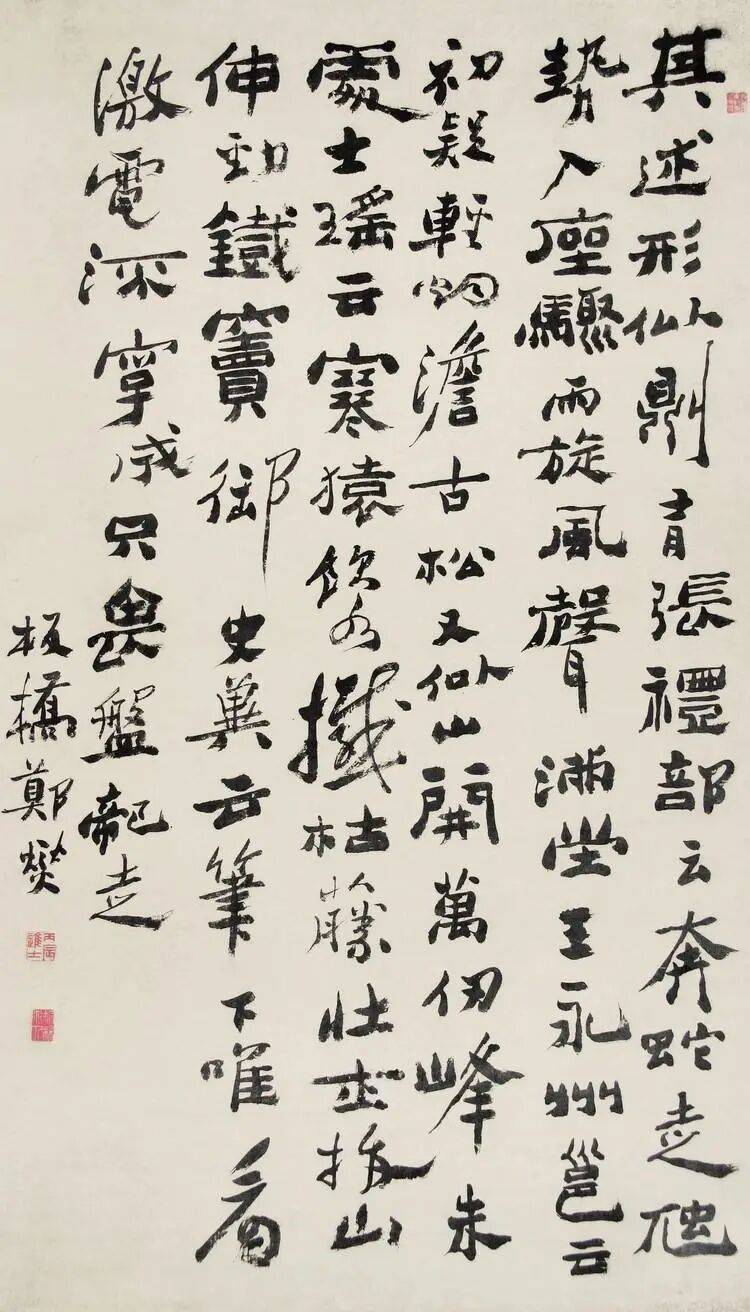 其述形似則有張禮部云奔蛇走虺
勢入座驟雨旋風聲滿堂王永州邕云
初疑輕烟澹古松又似山開萬仞峰朱
處士瑤云寒猿飲水撼枯藤壯士拔山
伸勁鐵竇御史冀云筆下唯看
激電流字成只畏盤龍走
板橋鄭燮
丙辰進士